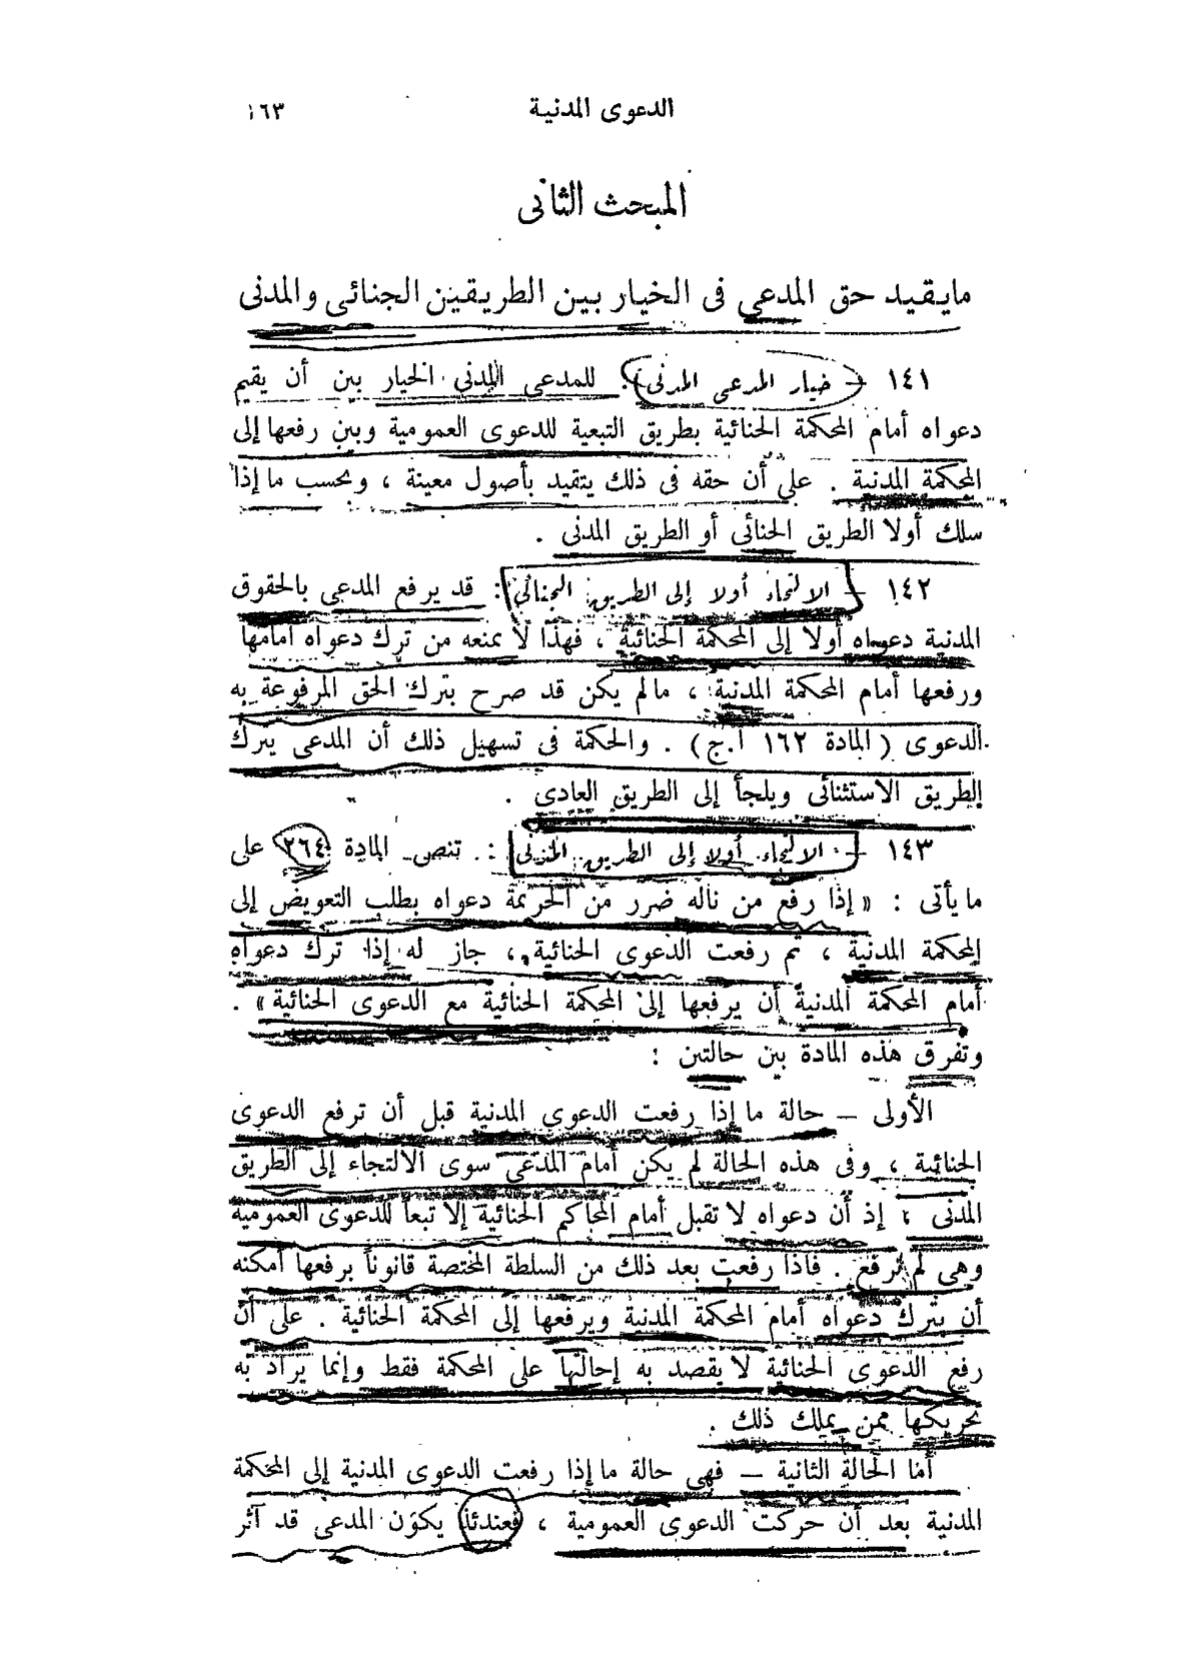 الدعوى المدنية
١٦٣
المبحث الثانى
مايقيد حق المدعي فى الخيار بين الطريقين الجنائى والمدنى
١٤١ – خيار المدعى المدنى : للمدعى المدنى الخيار بين أن يقيم
دعواه أمام المحكمة الجنائية بطريق التبعية للدعوى العمومية وبين رفعها إلى
المحكمة المدنية . على أن حقه فى ذلك يتقيد بأصول معينة ، وبحسب ما إذا
سلك أولا الطريق الجنائى أو الطريق المدنى .
١٤٢ – الالتجاء أولا إلى الطريق الجنائى : قد يرفع المدعى بالحقوق
المدنية دعواه أولا إلى المحكمة الجنائية ، فهذا لا يمنعه من ترك دعواه أمامها
ورفعها أمام المحكمة المدنية ، مالم يكن قد صرح بترك الحق المرفوعة به
الدعوى ( المادة ١٦٢ ا.ج ) . والحكمة فى تسهيل ذلك أن المدعى يترك
الطريق الاستثنائى ويلجأ إلى الطريق العادى .
١٤٣ – الالتجاء أولا إلى الطريق المدنى : تنص المادة ٢٦٤ على
ما يأتى : « إذا رفع من ناله ضرر من الجريمة دعواه بطلب التعويض إلى
المحكمة المدنية ، ثم رفعت الدعوى الجنائية ، جاز له إذا ترك دعواه
أمام المحكمة المدنية أن يرفعها إلى المحكمة الجنائية مع الدعوى الجنائية » .
وتفرق هذه المادة بين حالتين :
الأولى – حالة ما إذا رفعت الدعوى المدنية قبل أن ترفع الدعوى
الجنائية ، وفى هذه الحالة لم يكن أمام المدعى سوى الالتجاء إلى الطريق
المدنى ، إذ أن دعواه لا تقبل أمام المحاكم الجنائية إلا تبعاً للدعوى العمومية
وهى لم ترفع . فاذا رفعت بعد ذلك من السلطة المختصة قانوناً برفعها أمكنه
أن يترك دعواه أمام المحكمة المدنية ويرفعها إلى المحكمة الجنائية . على أن
رفع الدعوى الجنائية لا يقصد به إحالتها على المحكمة فقط وإنما يراد به
تحريكها ممن يملك ذلك .
أما الحالة الثانية – فهى حالة ما إذا رفعت الدعوى المدنية إلى المحكمة
المدنية بعد أن حركت الدعوى العمومية ، فعندئذ يكون المدعى قد آثر